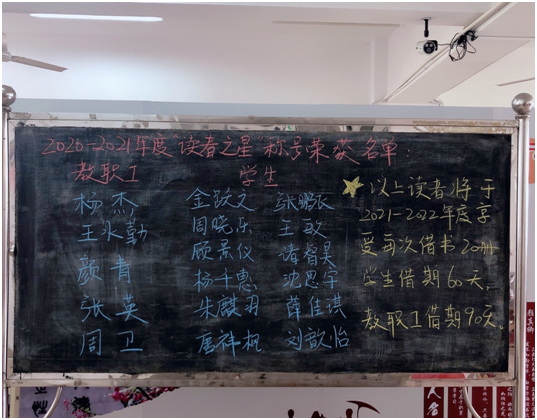 2020-2021年度读者之星称号荣获名单：
教职工 学生
杨杰 金跃文 张鹏辰
王永勤 周晓乐 王玫
颜青 顾景仪 诸睿昊
张英 杨千惠 沈思宇
周卫 朱麒羽 薛佳淇
唐祥枫 刘歆怡
以上读者将于
2021-2022年度享
受每次借书20册
学生借期60天，
教职工借期90天。